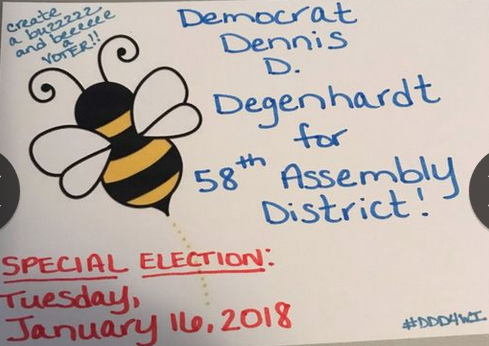 create
a buzzzzz
and beeeeee
a
VOTER!!
Democrat
Dennis
D.
Degenhardt
for
58th Assembly
District!
SPECIAL ELECTION:
Tuesday,
January 16, 2018
#DDD4WI